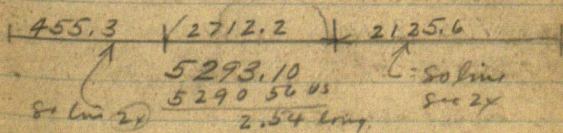 455.3 2712.2 2125.6
5293.10
5290 56 us
2.54 long
So line 2x
So line
sec 24